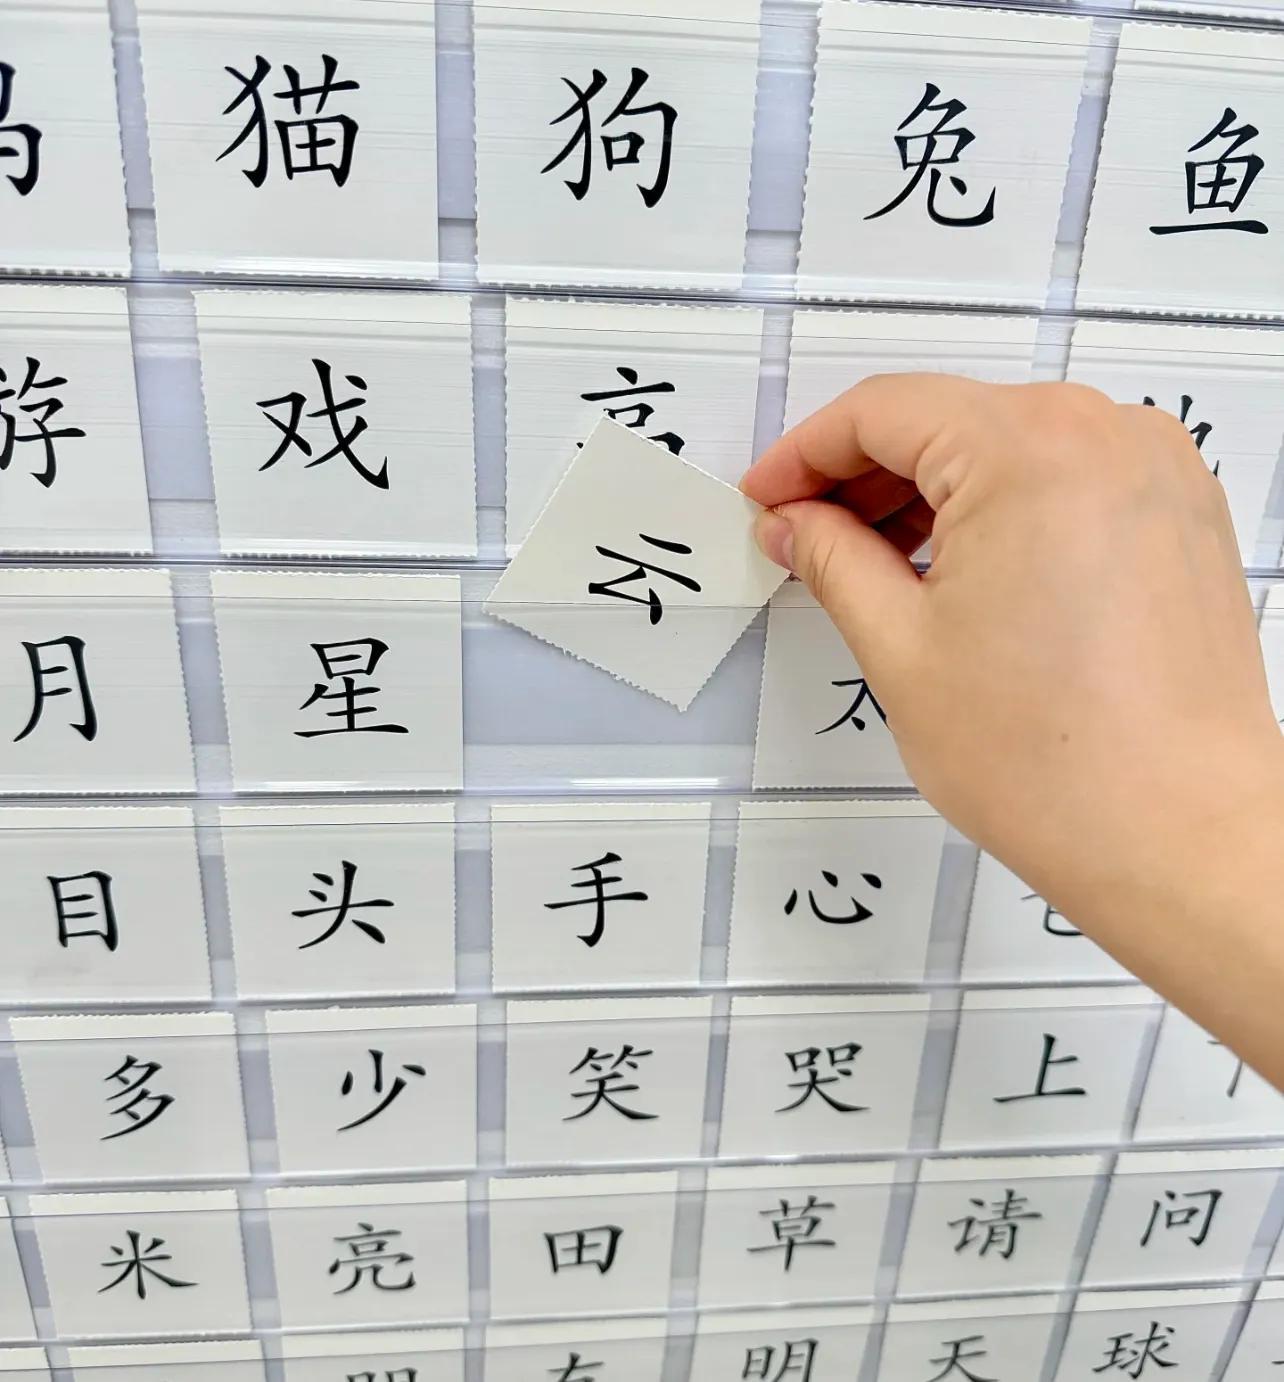 猫 狗 兔 鱼
游 戏
云
月 星 太
目 头 手 心
多 少 笑 哭 上
米 亮 田 草 请 问
明 天 球